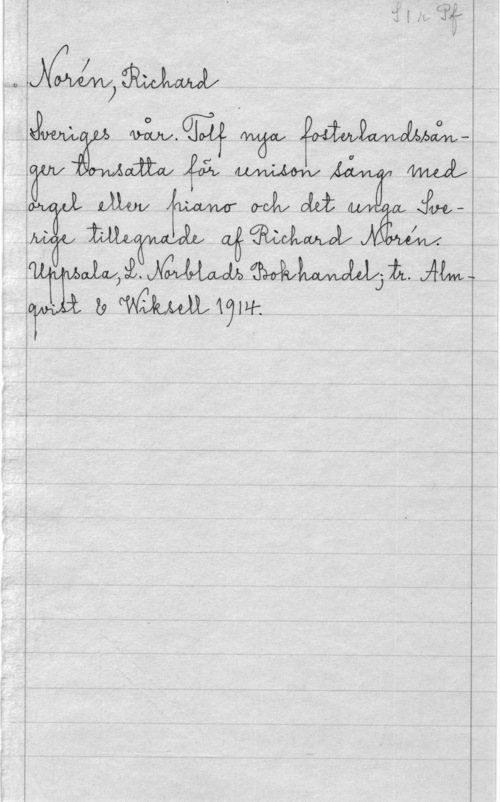 S 1 r Pf
Norén, Richard
Sveriges vår. Tolf nya fosterlandssån-
ger tonsatta för unison sång med
orgel eller piano och det unga Sve-
rige tillegnade af Richard Norén.
Uppsala, L. Norblads Bokhandel; tr. Alm-
qvist & Wiksell 1914.